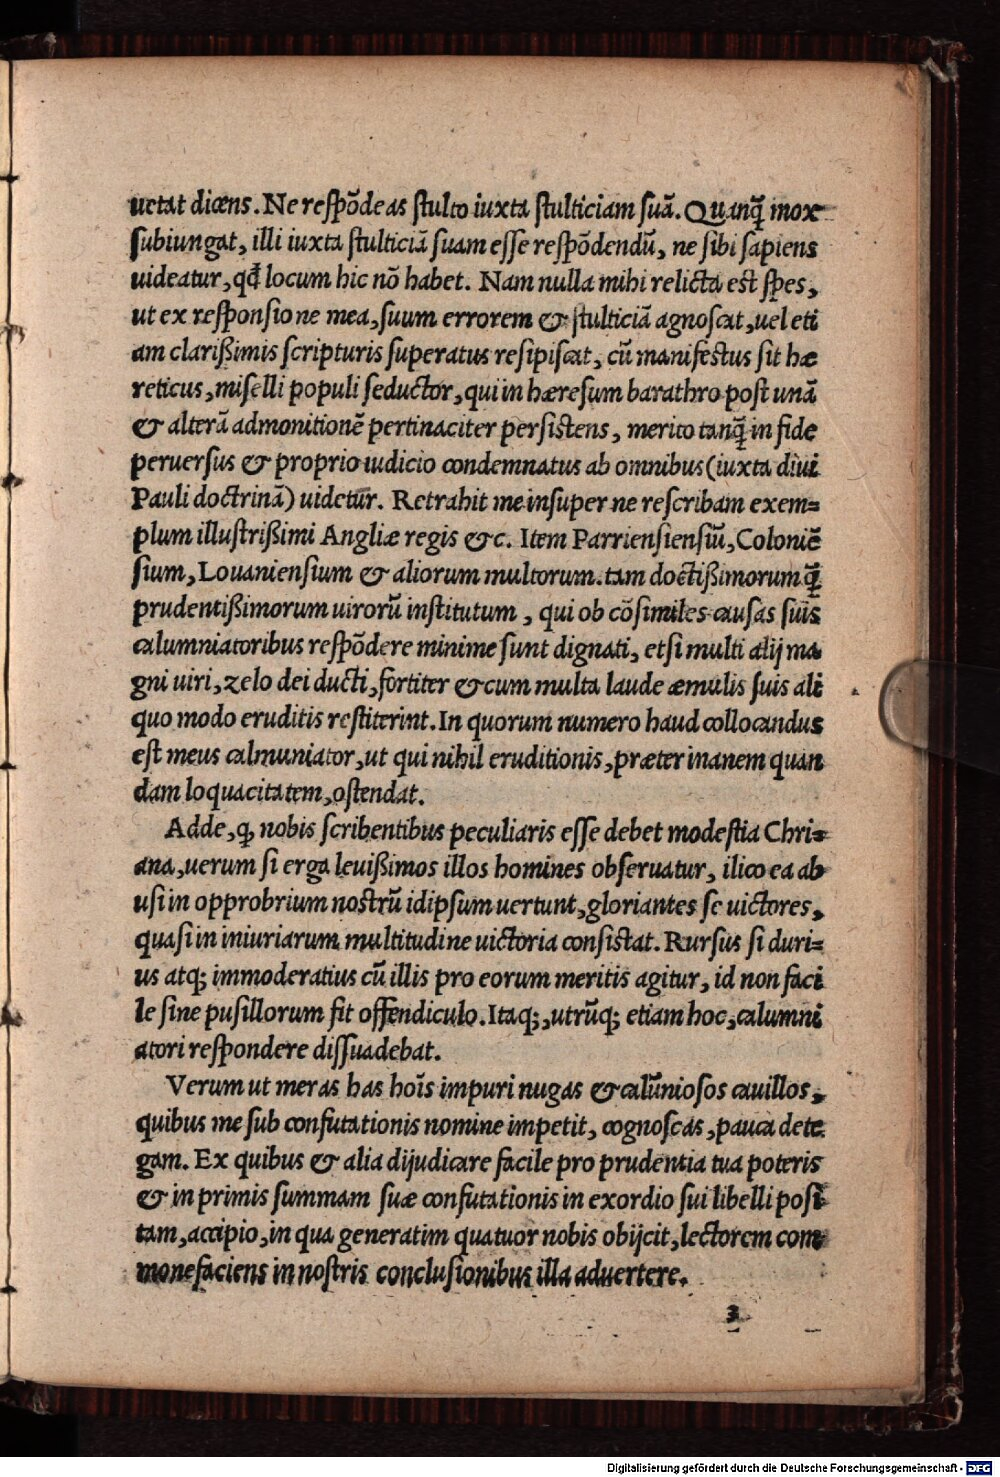 uetat dicens. Ne respõdeas stulto iuxta stulticiam suã. Quanq̃ mox
subiungat, illi iuxta stulticiã suam esse respõdendũ, ne sibi sapiens
uideatur, qđ locum hic nõ habet. Nam nulla mihi relicta est spes,
ut ex responsione mea, suum errorem & stulticiã agnoscat, uel eti
am clarißimis scripturis superatus resipiscat, cũ manifestus sit hæ
reticus, miselli populi seductor, qui in hæresum barathro post unã
& alterã admonitionẽ pertinaciter persistens, merito tanq̃ in fide
peruersus & proprio iudicio condemnatus ab omnibus (iuxta diui
Pauli doctrinã) uidetur. Retrahit me insuper ne rescribam exem=
plum illustrißimi Angliæ regis &c. Item Parriensiensiũ, Coloniẽ
sium, Louaniensium & aliorum multorum. tam doctißimorum q̃
prudentißimorum uirorũ institutum, qui ob cõsimiles causas suis
calumniatoribus respõdere minime sunt dignati, etsi multi alij ma
gni uiri, zelo dei ducti, fortiter & cum multa laude æmulis suis ali
quo modo eruditis restiterint. In quorum numero haud collocandus
est meus calmuniator, ut qui nihil eruditionis, præter inanem quan
dam loquacitatem, ostendat.
Adde, ꝙ nobis scribentibus peculiaris esse debet modestia Chri=
ana, uerum si erga leuißimos illos homines obseruatur, ilico ea ab
usi in opprobrium nostrũ idipsum uertunt, gloriantes se uictores,
quasi in iniuriarum multitudine uictoria consistat. Rursus si duri=
us atq; immoderatius cũ illis pro eorum meritis agitur, id non faci
le sine pusillorum fit offendiculo. Itaq;, utrũq; etiam hoc, calumni
atori respondere dissuadebat.
Verum ut meras has hoĩs impuri nugas & calũniosos cauillos,
quibus me sub confutationis nomine impetit, cognoscas, pauca dete
gam. Ex quibus & alia dijudicare facile pro prudentia tua poteris
& in primis summam suæ confutationis in exordio sui libelli posi
tam, accipio, in qua generatim quatuor nobis obijcit, lectorem com
monefaciens in nostris conclusionibus illa aduertere.
3
Digitalisierung gefördert durch die Deutsche Forschungsgemeinschaft - DFG